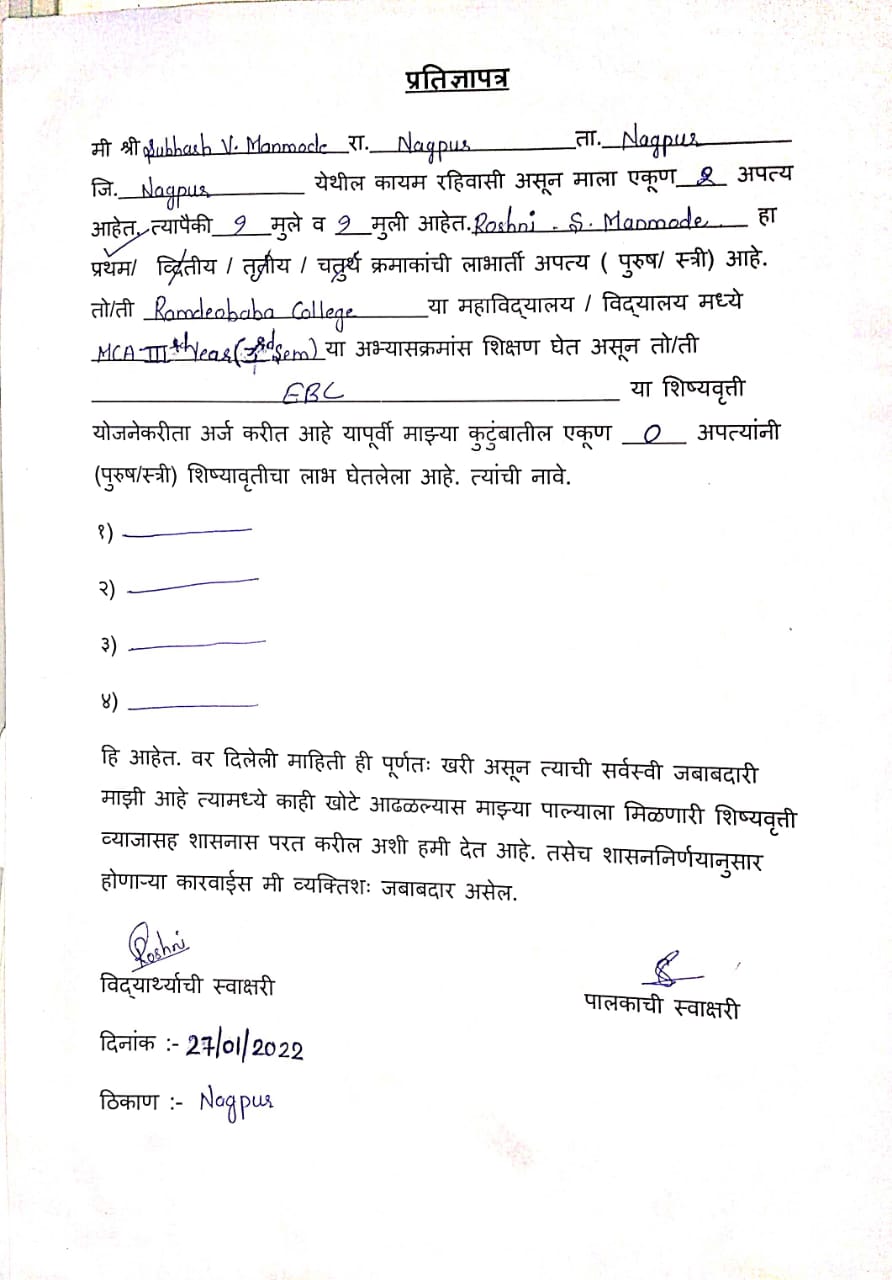 प्रतिज्ञापत्र
मी श्री Subhash V. Manmode रा. Nagpur ता. Nagpur
जि. Nagpur येथील कायम रहिवासी असून माला एकूण २ अपत्य
आहेत. त्यापैकी १ मुले व १ मुली आहेत. Roshni . S. Manmode हा
प्रथम/ द्वितीय / तृतीय / चतुर्थ क्रमाकांची लाभार्ती अपत्य ( पुरुष/ स्त्री) आहे.
तो/ती Ramdeobaba College या महाविद्यालय / विद्यालय मध्ये
MCA-III Year( Sem) या अभ्यासक्रमांस शिक्षण घेत असून तो/ती
EBC या शिष्यवृत्ती
योजनेकरीता अर्ज करीत आहे यापूर्वी माझ्या कुटुंबातील एकूण 0 अपत्यांनी
(पुरुष/स्त्री) शिष्यावृतीचा लाभ घेतलेला आहे. त्यांची नावे.
१)
२)
३)
४)
हि आहेत. वर दिलेली माहिती ही पूर्णतः खरी असून त्याची सर्वस्वी जबाबदारी
माझी आहे त्यामध्ये काही खोटे आढळल्यास माझ्या पाल्याला मिळणारी शिष्यवृत्ती
व्याजासह शासनास परत करील अशी हमी देत आहे. तसेच शासननिर्णयानुसार
होणाऱ्या कारवाईस मी व्यक्तिशः जबाबदार असेल.
Roshni
विद्यार्थ्याची स्वाक्षरी
पालकाची स्वाक्षरी
दिनांक :- 27/01/2022
ठिकाण :- Nagpur